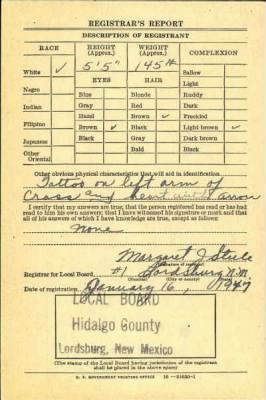 REGISTRAR'S REPORT
DESCRIPTION OF REGISTRANT
RACE HEIGHT (Approx.) WEIGHT (Approx.) COMPLEXION
5'5" 145 #
White ✓ Sallow
EYES HAIR Light
Negro Blue Blonde Ruddy
Indian Gray Red Dark
Hazel Brown ✓ Freckled
Filipino Brown ✓ Black Light brown ✓
Japanese Black Gray Dark brown
Other Oriental Bald Black
Other obvious physical characteristics that will aid in identification
Tattoo on left arm of
Cross and heart with arrow
I certify that my answers are true; that the person registered has read or has had
read to him his own answers; that I have witnessed his signature or mark and that
all of his answers of which I have knowledge are true, except as follows:
None
Margaret J Steele
(Signature of registrar)
Registrar for Local Board #1 Lordsburg N.M.
(Number) (City or county) (State)
Date of registration January 16, 1947
LOCAL BOARD
Hidalgo County
Lordsburg, New Mexico
(The stamp of the Local Board having jurisdiction of the registrant
shall be placed in the above space)
U. S. GOVERNMENT PRINTING OFFICE 16—21630-1